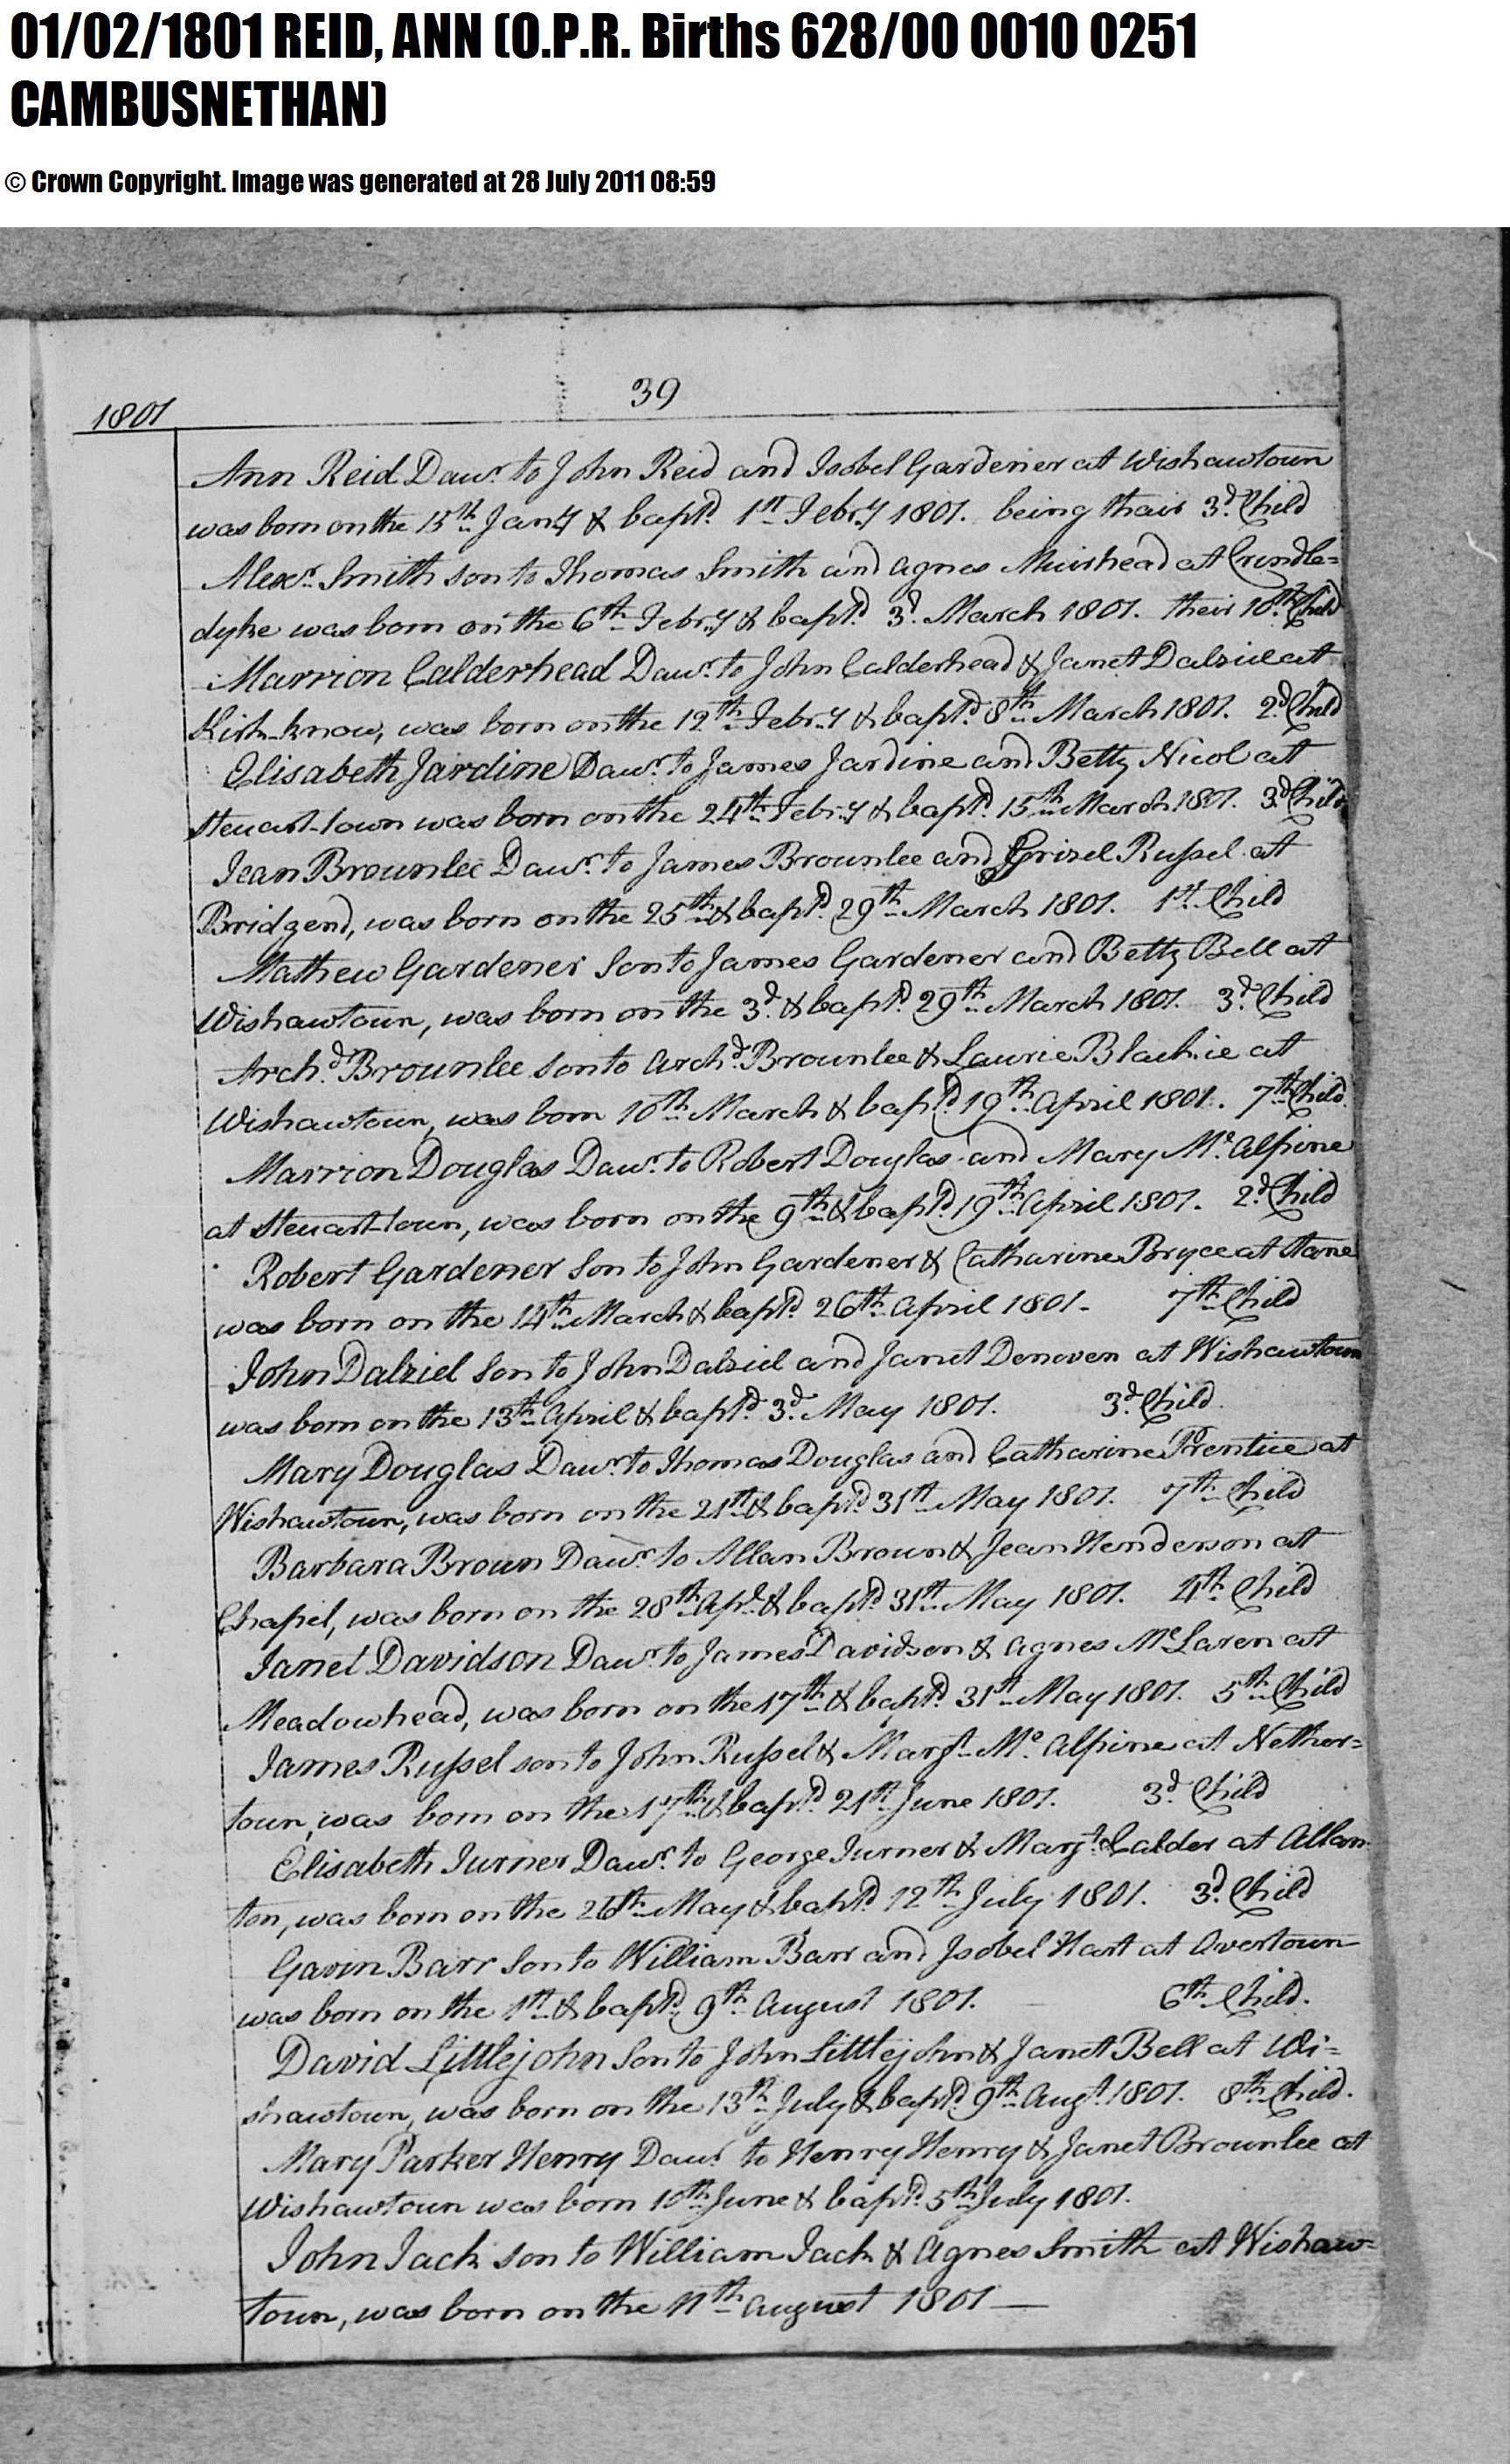 01/02/1801 REID, ANN (O.P.R. Births 628/00 0010 0251
CAMBUSNETHAN)
© Crown Copyright. Image was generated at 28 July 2011 08:59
39
1801
Ann Reid Dawr. to John Reid and Isobel Gardener at Wishawtoun
was born on the 15th Jany & baptd. 1st Febry 1801. being thair 3d. Child
Alexr. Smith son to Thomas Smith and Agnes Muirhead at Crindle=
dyke was born on the 6th Febry & baptd. 3d. March 1801. their 10th. Child
Marrion Calderhead Dawr. to John Calderhead & Janet Dalziel at
Kirk-know, was born on the 12th Febry & baptd. 8th March 1801. 2d. Child
Elisabeth Jardine Dawr. to James Jardine and Betty Nicol at
Steuart-town was born on the 24th Febry & baptd. 15th March 1801. 3d. Child
Jean Brounlee Dawr. to James Brounlee and Grizel Russel at
Bridgend, was born on the 25th & baptd. 29th March 1801. 1st. Child
Mathew Gardener Son to James Gardener and Betty Bell at
Wishawtoun, was born on the 3d. & baptd. 29th March 1801. 3d. Child
Archd. Brounlee son to Archd. Brounlee & Laurie Blackie at
Wishawtoun, was born 10th March & baptd. 19th April 1801. 7th Child.
Marrion Douglas Dawr. to Robert Douglas and Mary Mc. Alpine
at Steuart-toun, was born on the 9th & baptd. 19th April 1801. 2d. Child
Robert Gardener Son to John Gardener & Catharine Bryce at Stane
was born on the 14th March & baptd. 26th April 1801. 7th Child
John Dalziel Son to John Dalziel and Janet Denoven at Wishawtoun
was born on the 13th April & baptd. 3d. May 1801. 3d. Child.
Mary Douglas Dawr. to Thomas Douglas and Catharine Prentice at
Wishawtoun, was born on the 21st & baptd. 31st May 1801. 7th Child
Barbara Broun Dawr. to Allan Broun & Jean Henderson at
Chapel, was born on the 28th Apl. & baptd. 31st May 1801. 4th Child
Janet Davidson Dawr. to James Davidson & Agnes McLaren at
Meadowhead, was born on the 17th & baptd. 31st May 1801. 5th Child
James Russel son to John Russel & Margt. Mc. Alpine at Nether=
toun, was born on the 17th & baptd. 21st June 1801. 3d. Child
Elisabeth Turner Dawr. to George Turner & Margt. Calder at Allan
ton, was born on the 26th May & baptd. 12th July 1801. 3d. Child
Gavin Barr Son to William Barr and Isobel Hart at Overtoun
was born on the 1st & baptd. 9th August 1801. 6th Child.
David Littlejohn Son to John Littlejohn & Janet Bell at Wi=
shawtoun, was born on the 13th July & baptd. 9th Augt. 1801. 8th Child.
Mary Parker Henry Dawr to Henry Henry & Janet Brounlee at
Wishawtoun was born 10th June & baptd. 5th July 1801.
John Jack son to William Jack & Agnes Smith at Wishaw=
toun, was born on the 11th August 1801 —